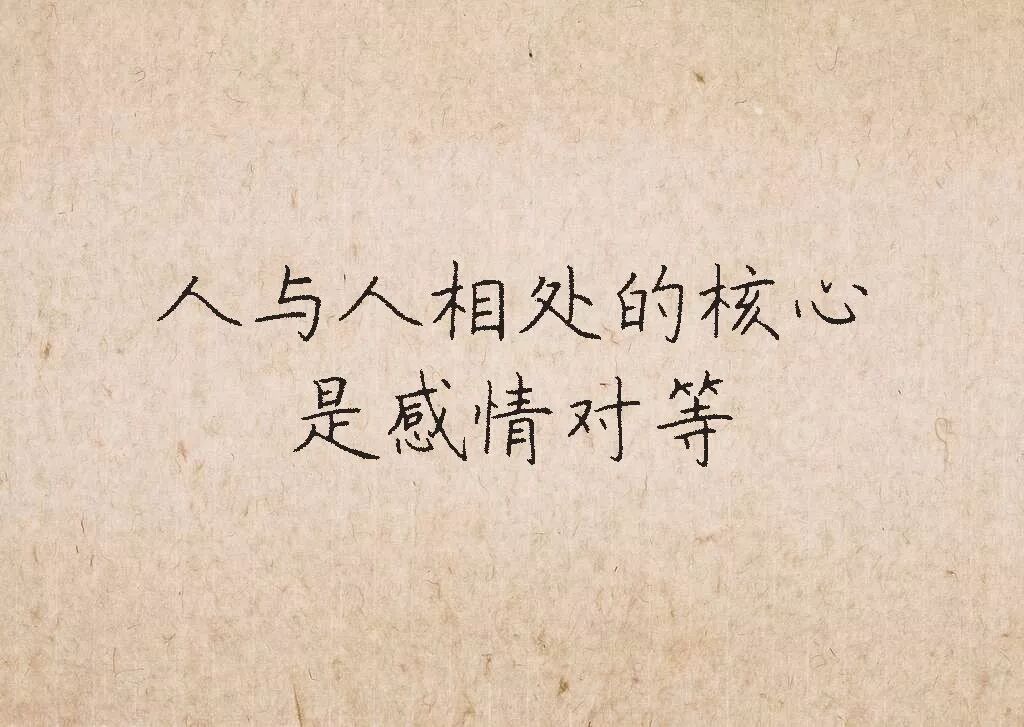 人与人相处的核心
是感情对等